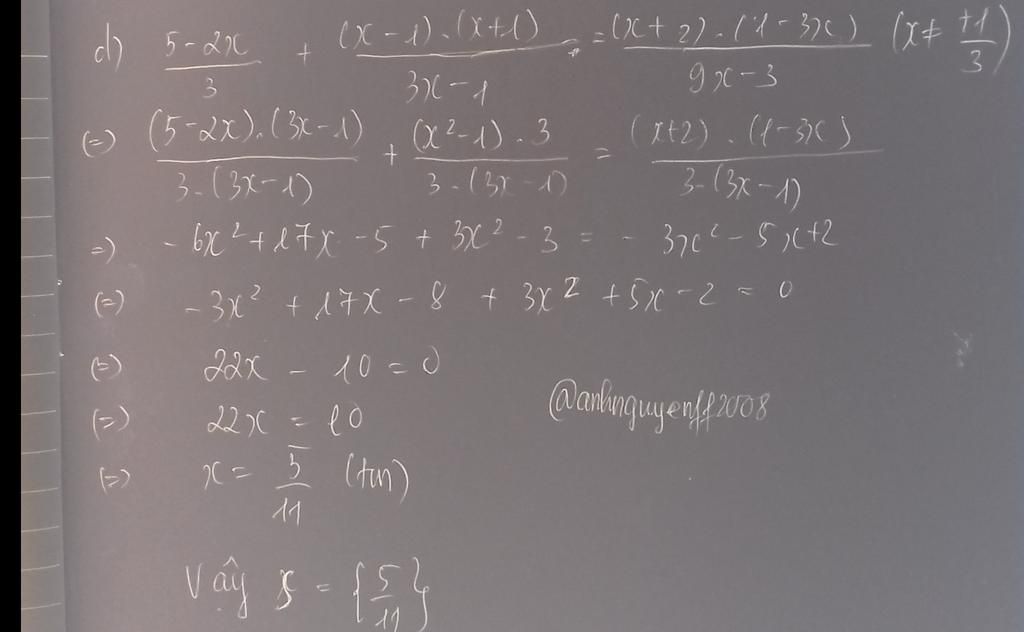 d) (5-2x)/3 + ((x-1).(x+1))/(3x-1) = ((x+2).(1-3x))/(9x-3) (x≠ +1/3)
(=) ((5-2x).(3x-1))/(3.(3x-1)) + ((x²-1).3)/(3.(3x-1)) = ((x+2).(1-3x))/(3.(3x-1))
=) -6x²+17x-5 + 3x²-3 = -3x²-5x+2
(=) -3x² + 17x - 8 + 3x² + 5x - 2 = 0
(=) 22x - 10 = 0
(=) 22x = 10
@anhnguyenff2008
(=) x = 5/11 (tm)
Vậy S = {5/11}